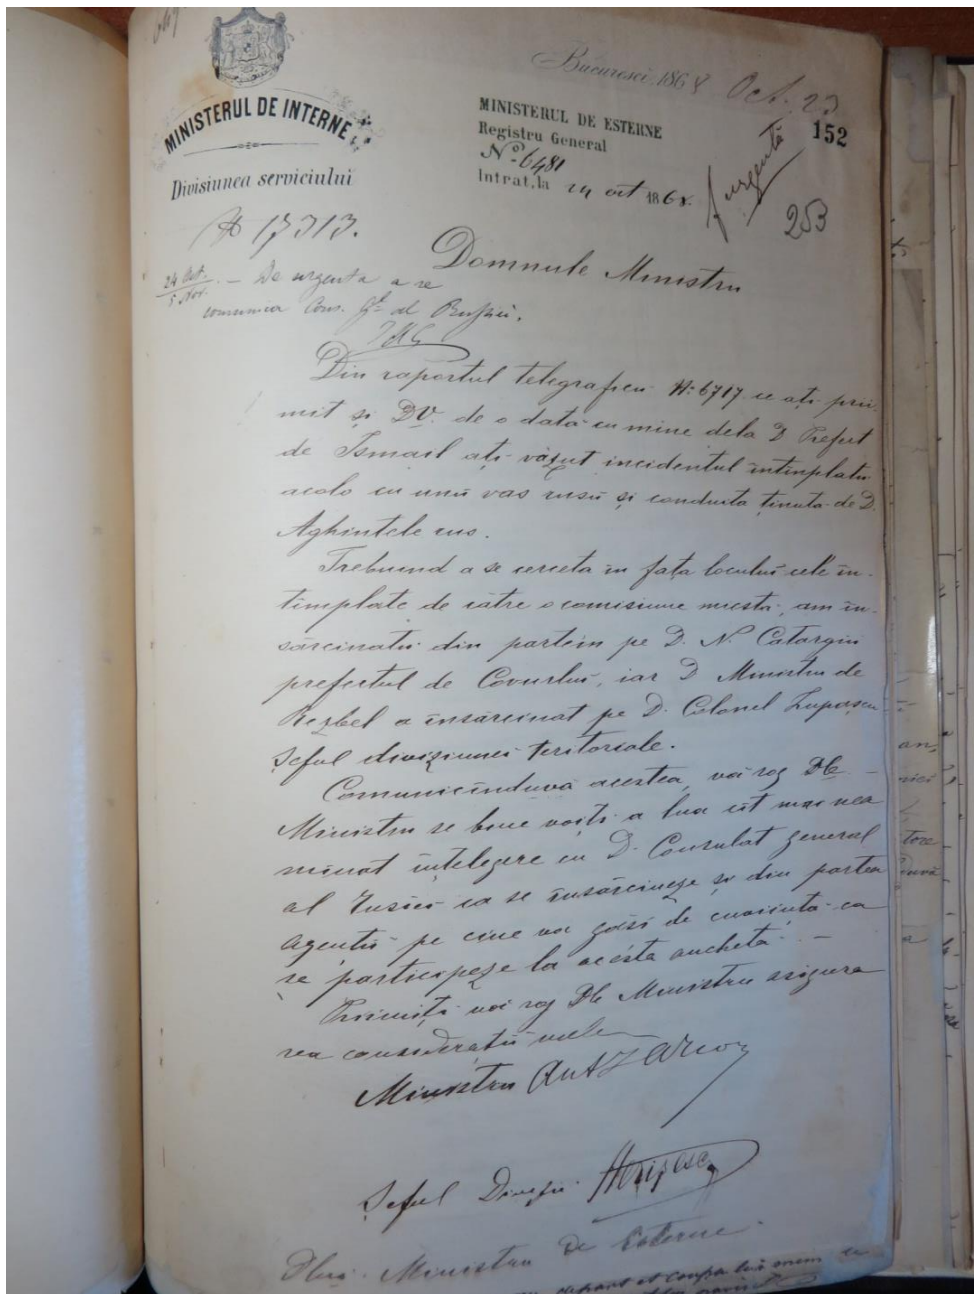 MINISTERUL DE INTERNE
Divisiunea serviciului
No 17313.
Bucuresci 1868 Oct. 23
MINISTERUL DE ESTERNE
Registru General
No. 6481
Intrat, la 24 oct 1868.
urgentă
152
253
24 Oct.
5 Nov. — De urgenta a se
comunica Cons. Gl. al Rusiei.
Domnule Ministru
Din raportul telegraficu No 6717 ce ați prii-
mit și DV. de o data cu mine dela D. Prefect
de Ismail ați vaḑut incidentul intimplatu
acolo cu unu vas rusu și conduita ținuta de D.
Aghintele rus.
Trebuind a se cerceta in fața locului cele in-
timplate de către o comisiune miesta, am in-
sărcinatu din partem pe D. N. Catargiu
prefectul de Covurlui, iar D Ministru de
Resbel a însărcinat pe D. Colonel Lupașcu
Șeful diviziunei teritoriale.
Comunicînduvă acestea, vă rog Dle
Ministru se bine voiți a lua cît mai nea
mînat ințelegere cu D. Consulat general
al Rusiei ca se însărcineze și din partea
Agenții pe cine va găsi de cuviința ca
se participeze la acésta anchetă. —
Priimiți vă rog Dle Ministru asigura
rea consideratii mele
Ministru
Șeful Divizii
Dlui. Ministru de Esterne